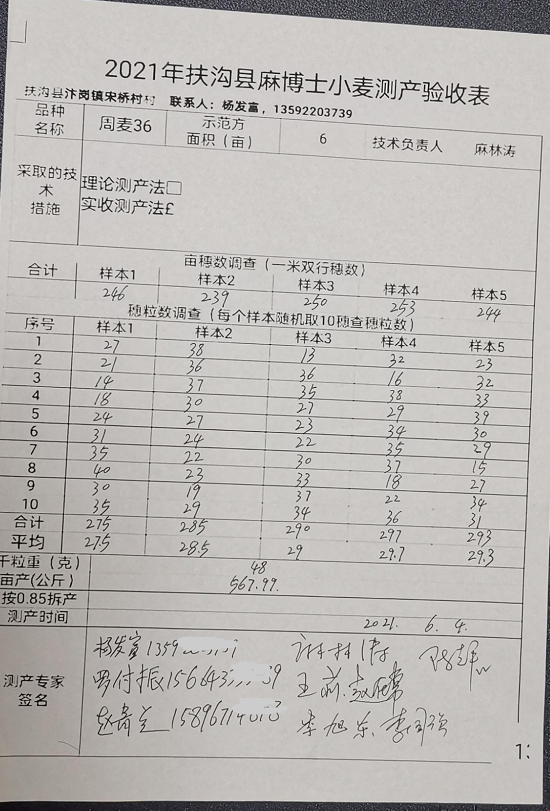 2021年扶沟县麻博士小麦测产验收表
扶沟县汴岗镇宋桥村村 联系人：杨发富，13592203739
品种名称 周麦36 示范方面积（亩） 6 技术负责人 麻林涛
采取的技术措施 理论测产法□
实收测产法£
亩穗数调查（一米双行穗数）
合计 样本1 样本2 样本3 样本4 样本5
246 239 250 253 244
穗粒数调查（每个样本随机取10穗查穗粒数）
序号 样本1 样本2 样本3 样本4 样本5
1 27 38 13 32 23
2 21 36 36 16 32
3 14 37 35 38 33
4 18 30 27 29 39
5 24 27 23 34 30
6 31 24 22 35 29
7 35 22 30 37 15
8 40 23 33 18 27
9 30 19 37 22 34
10 35 29 34 36 31
合计 275 285 290 297 293
平均 27.5 28.5 29 29.7 29.3
千粒重（克） 48
亩产(公斤) 567.99.
按0.85拆产
测产时间 2021. 6. 4.
测产专家签名
杨发富1359 麻林涛
罗付振15643 王莉
15896714 李旭东
1: